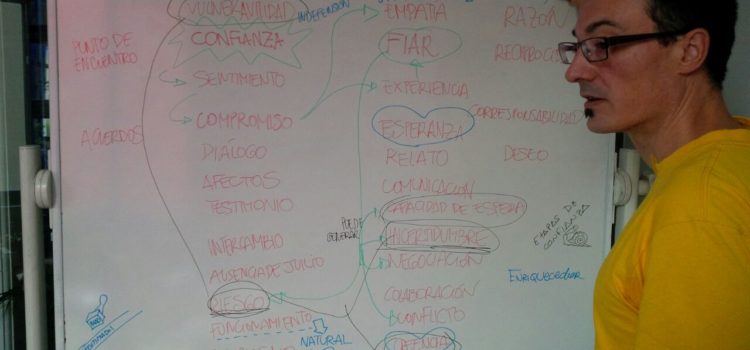 VULNERABILIDAD
INDEFENSIÓN
EMPATÍA
RAZÓN
PUNTO DE
ENCUENTRO
CONFIANZA
FIAR
SENTIMIENTO
EXPERIENCIA
COMPROMISO
ESPERANZA
CORRESPONSABILIDAD
ACUERDOS
DIÁLOGO
RELATO
DESEO
AFECTOS
COMUNICACIÓN
TESTIMONIO
CAPACIDAD DE ESPERA
PUEDE
GENERAR
INCERTIDUMBRE
ETAPAS DE
CONFIANZA
INTERCAMBIO
NEGOCIACIÓN
AUSENCIA DE JUICIO
COLABORACIÓN
RIESGO
CONFLICTO
FUNCIONAMIENTO
NATURAL